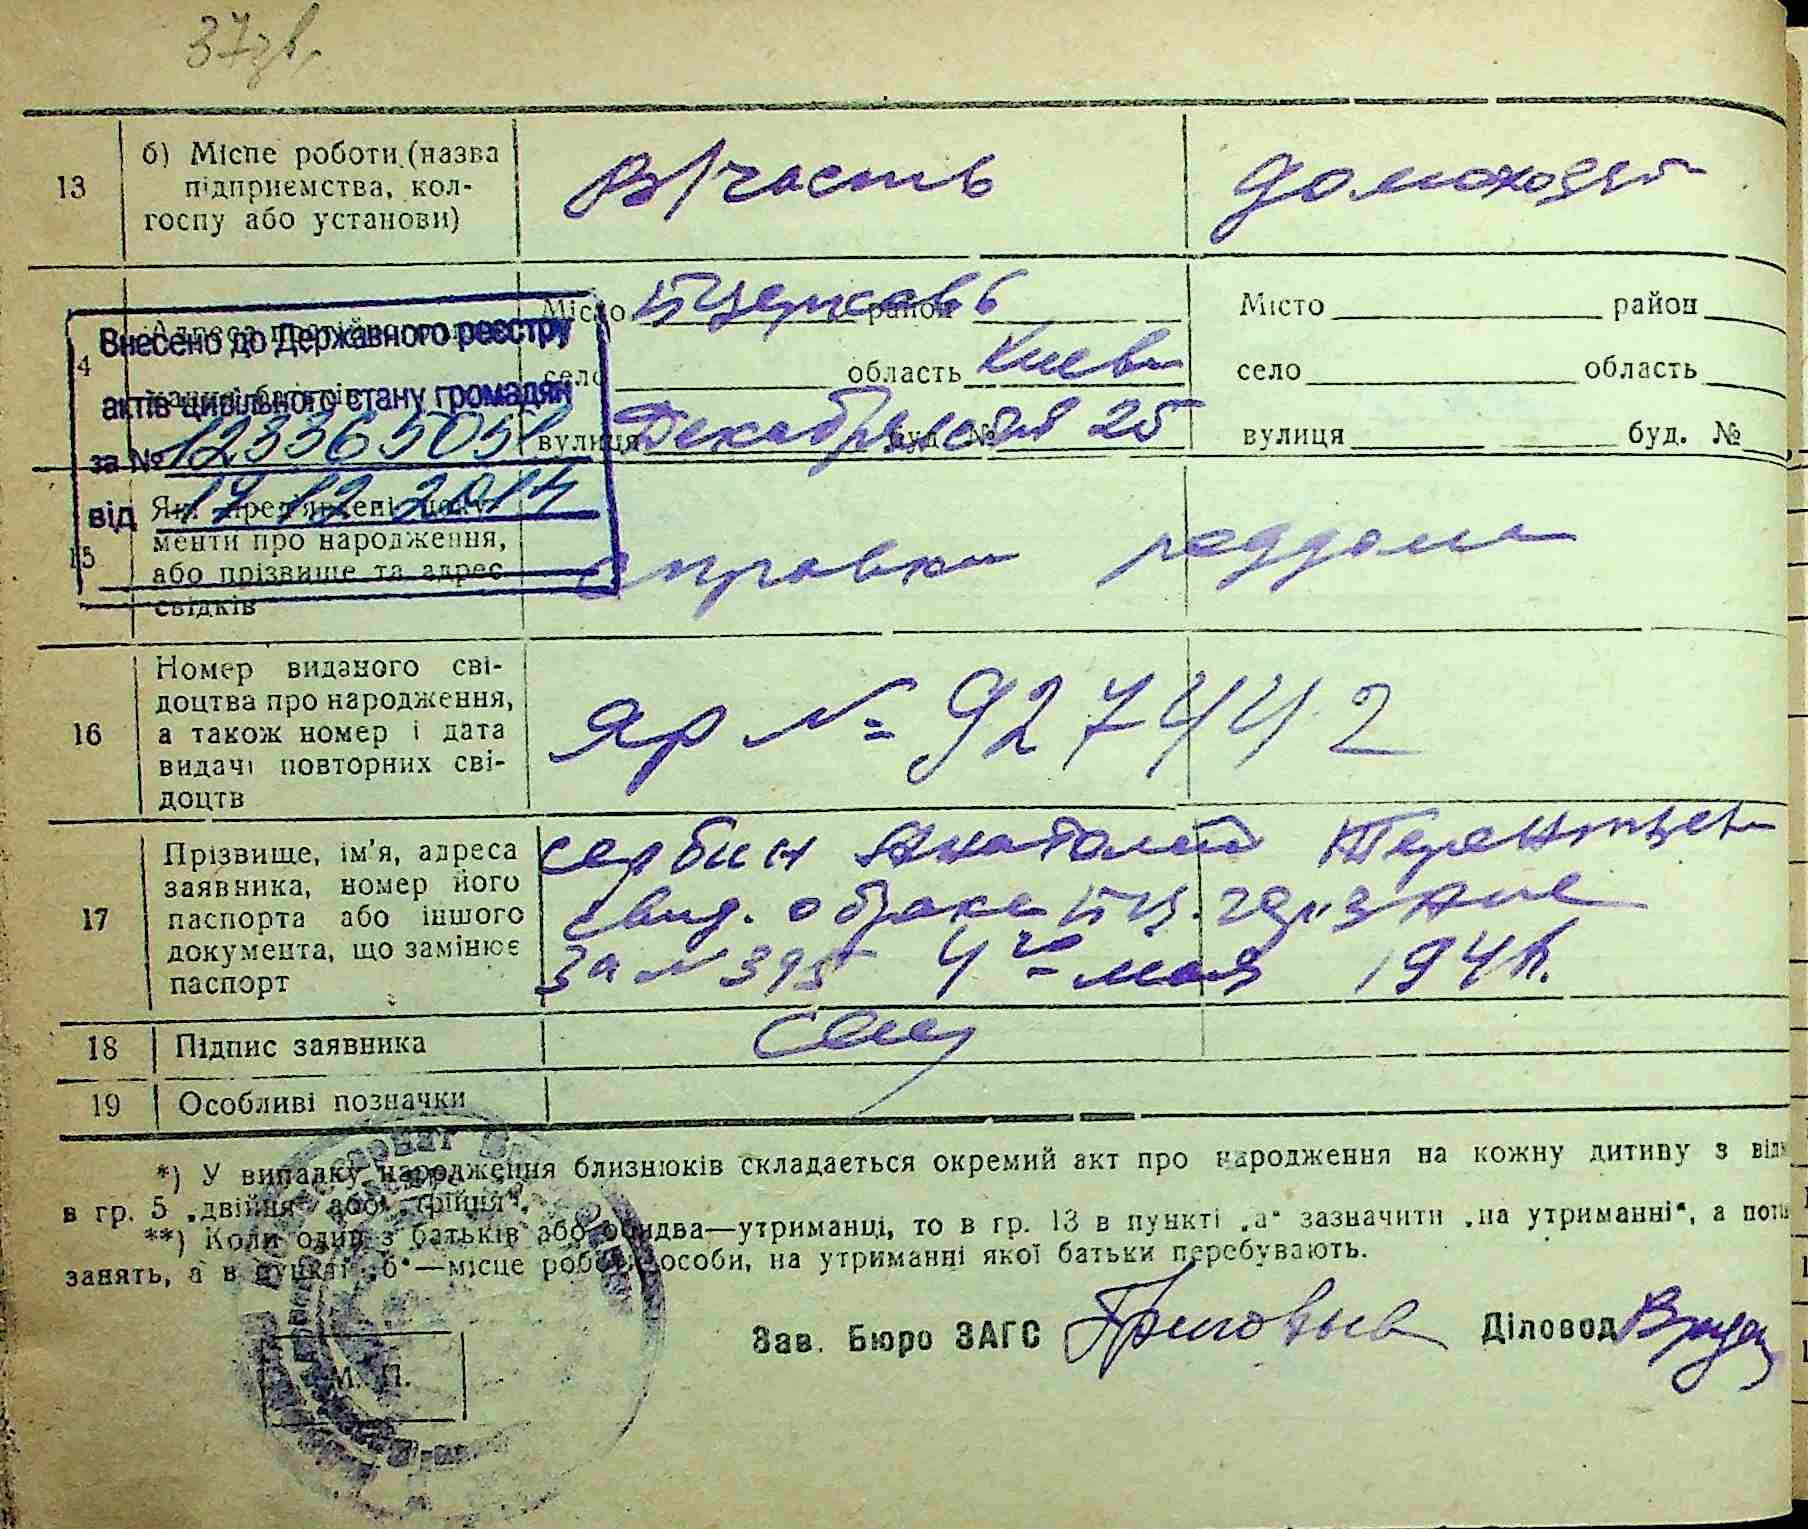 37зв.
13 б) Місце роботи (назва підприємства, колгоспу або установи) В/часть домохозяй
Місто Б Церковь район Місто район
4 село область Киевс село область
вулиця Декабрьская буд. № 25 вулиця буд. №
Внесено до Державного реєстру
актів цивільного стану громадян
за №
від 17 12 2014
15
менти про народження,
або прізвище та адрес
свідків
справка роддома
16
Номер виданого сві-
доцтва про народження,
а також номер і дата
видачі повторних сві-
доцтв
ЯР № 927442
17
Прізвище, ім'я, адреса
заявника, номер його
паспорта або іншого
документа, що замінює
паспорт
Сербин Анатолий
свид. о браке БЦ.
за № 395 4го мая 194
18 Підпис заявника
19 Особливі позначки
*) У випадку народження близнюків складається окремий акт про народження на кожну дитину з від
в гр. 5 „двійня" або „трійня".
**) Коли один з батьків або обидва—утриманці, то в гр. 13 в пункті „а" зазначити „на утриманні", а
занять, а в пункті „б"—місце роботи особи, на утриманні якої батьки перебувають.
Зав. Бюро ЗАГС Діловод
М. П.